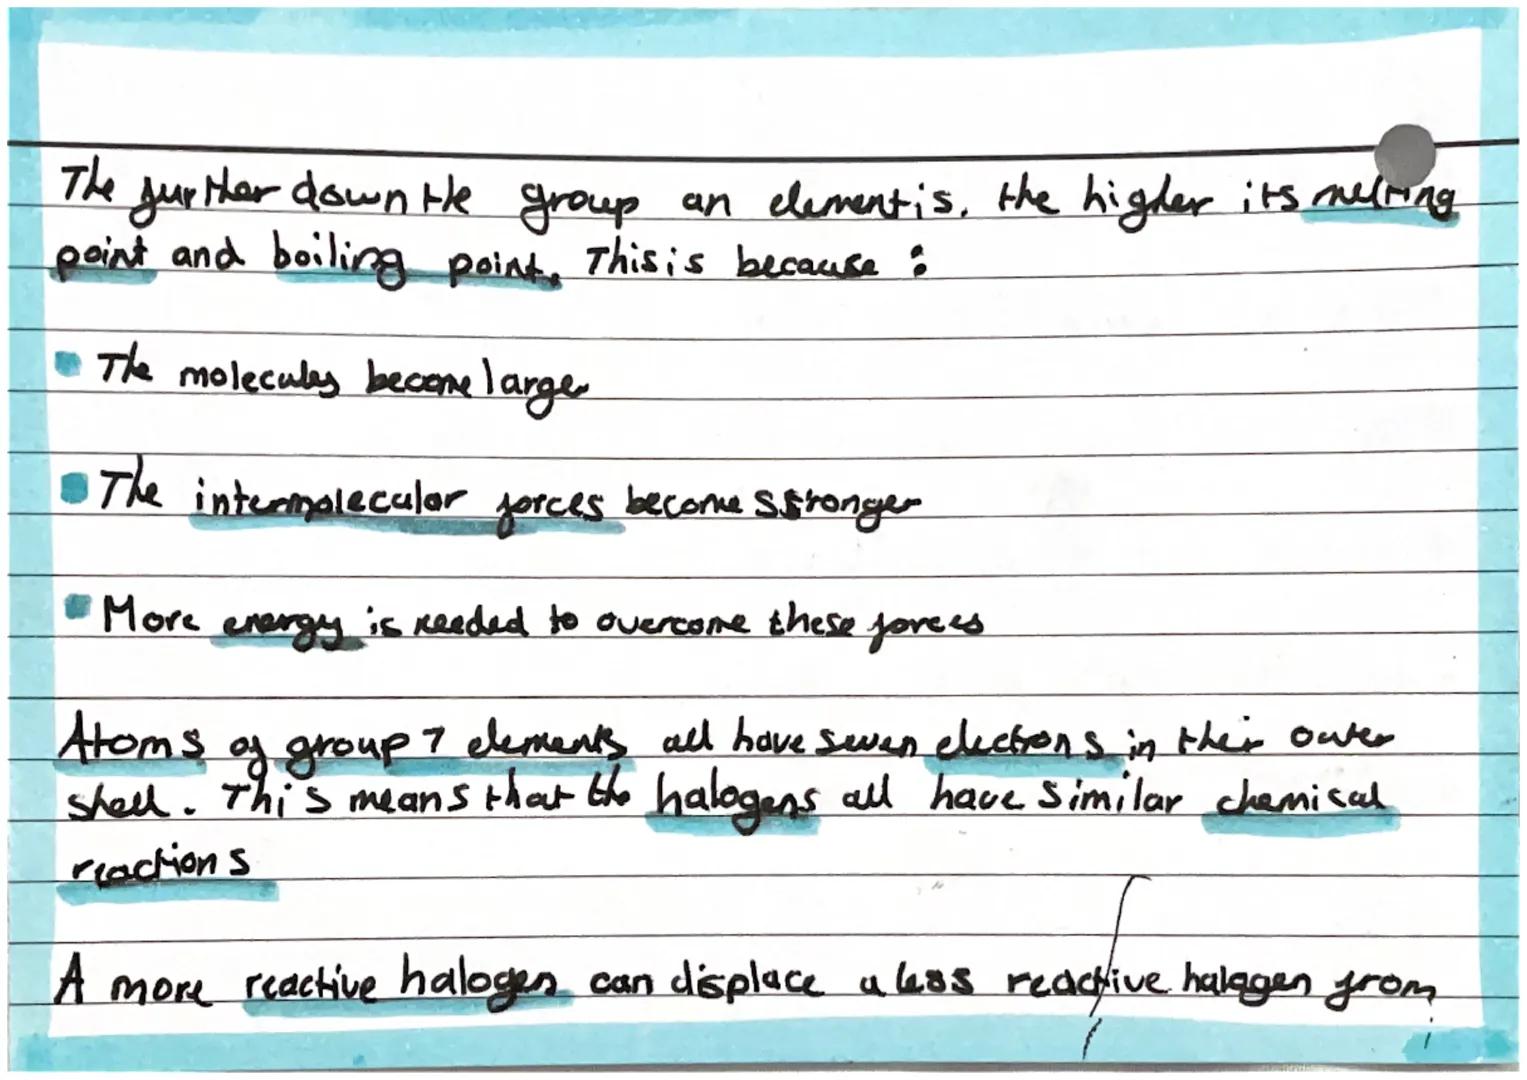 The further down the group an element is, the higher its melting
point and boiling point. This is because :
The molecules become larger
The intermolecular forces become stronger
More energy is needed to overcome these forces
Atoms of group 7 elements all have seven electrons in their outer
shell. This means that the halogens all have similar chemical
reactions
A more reactive halogen can displace a less reactive halogen from